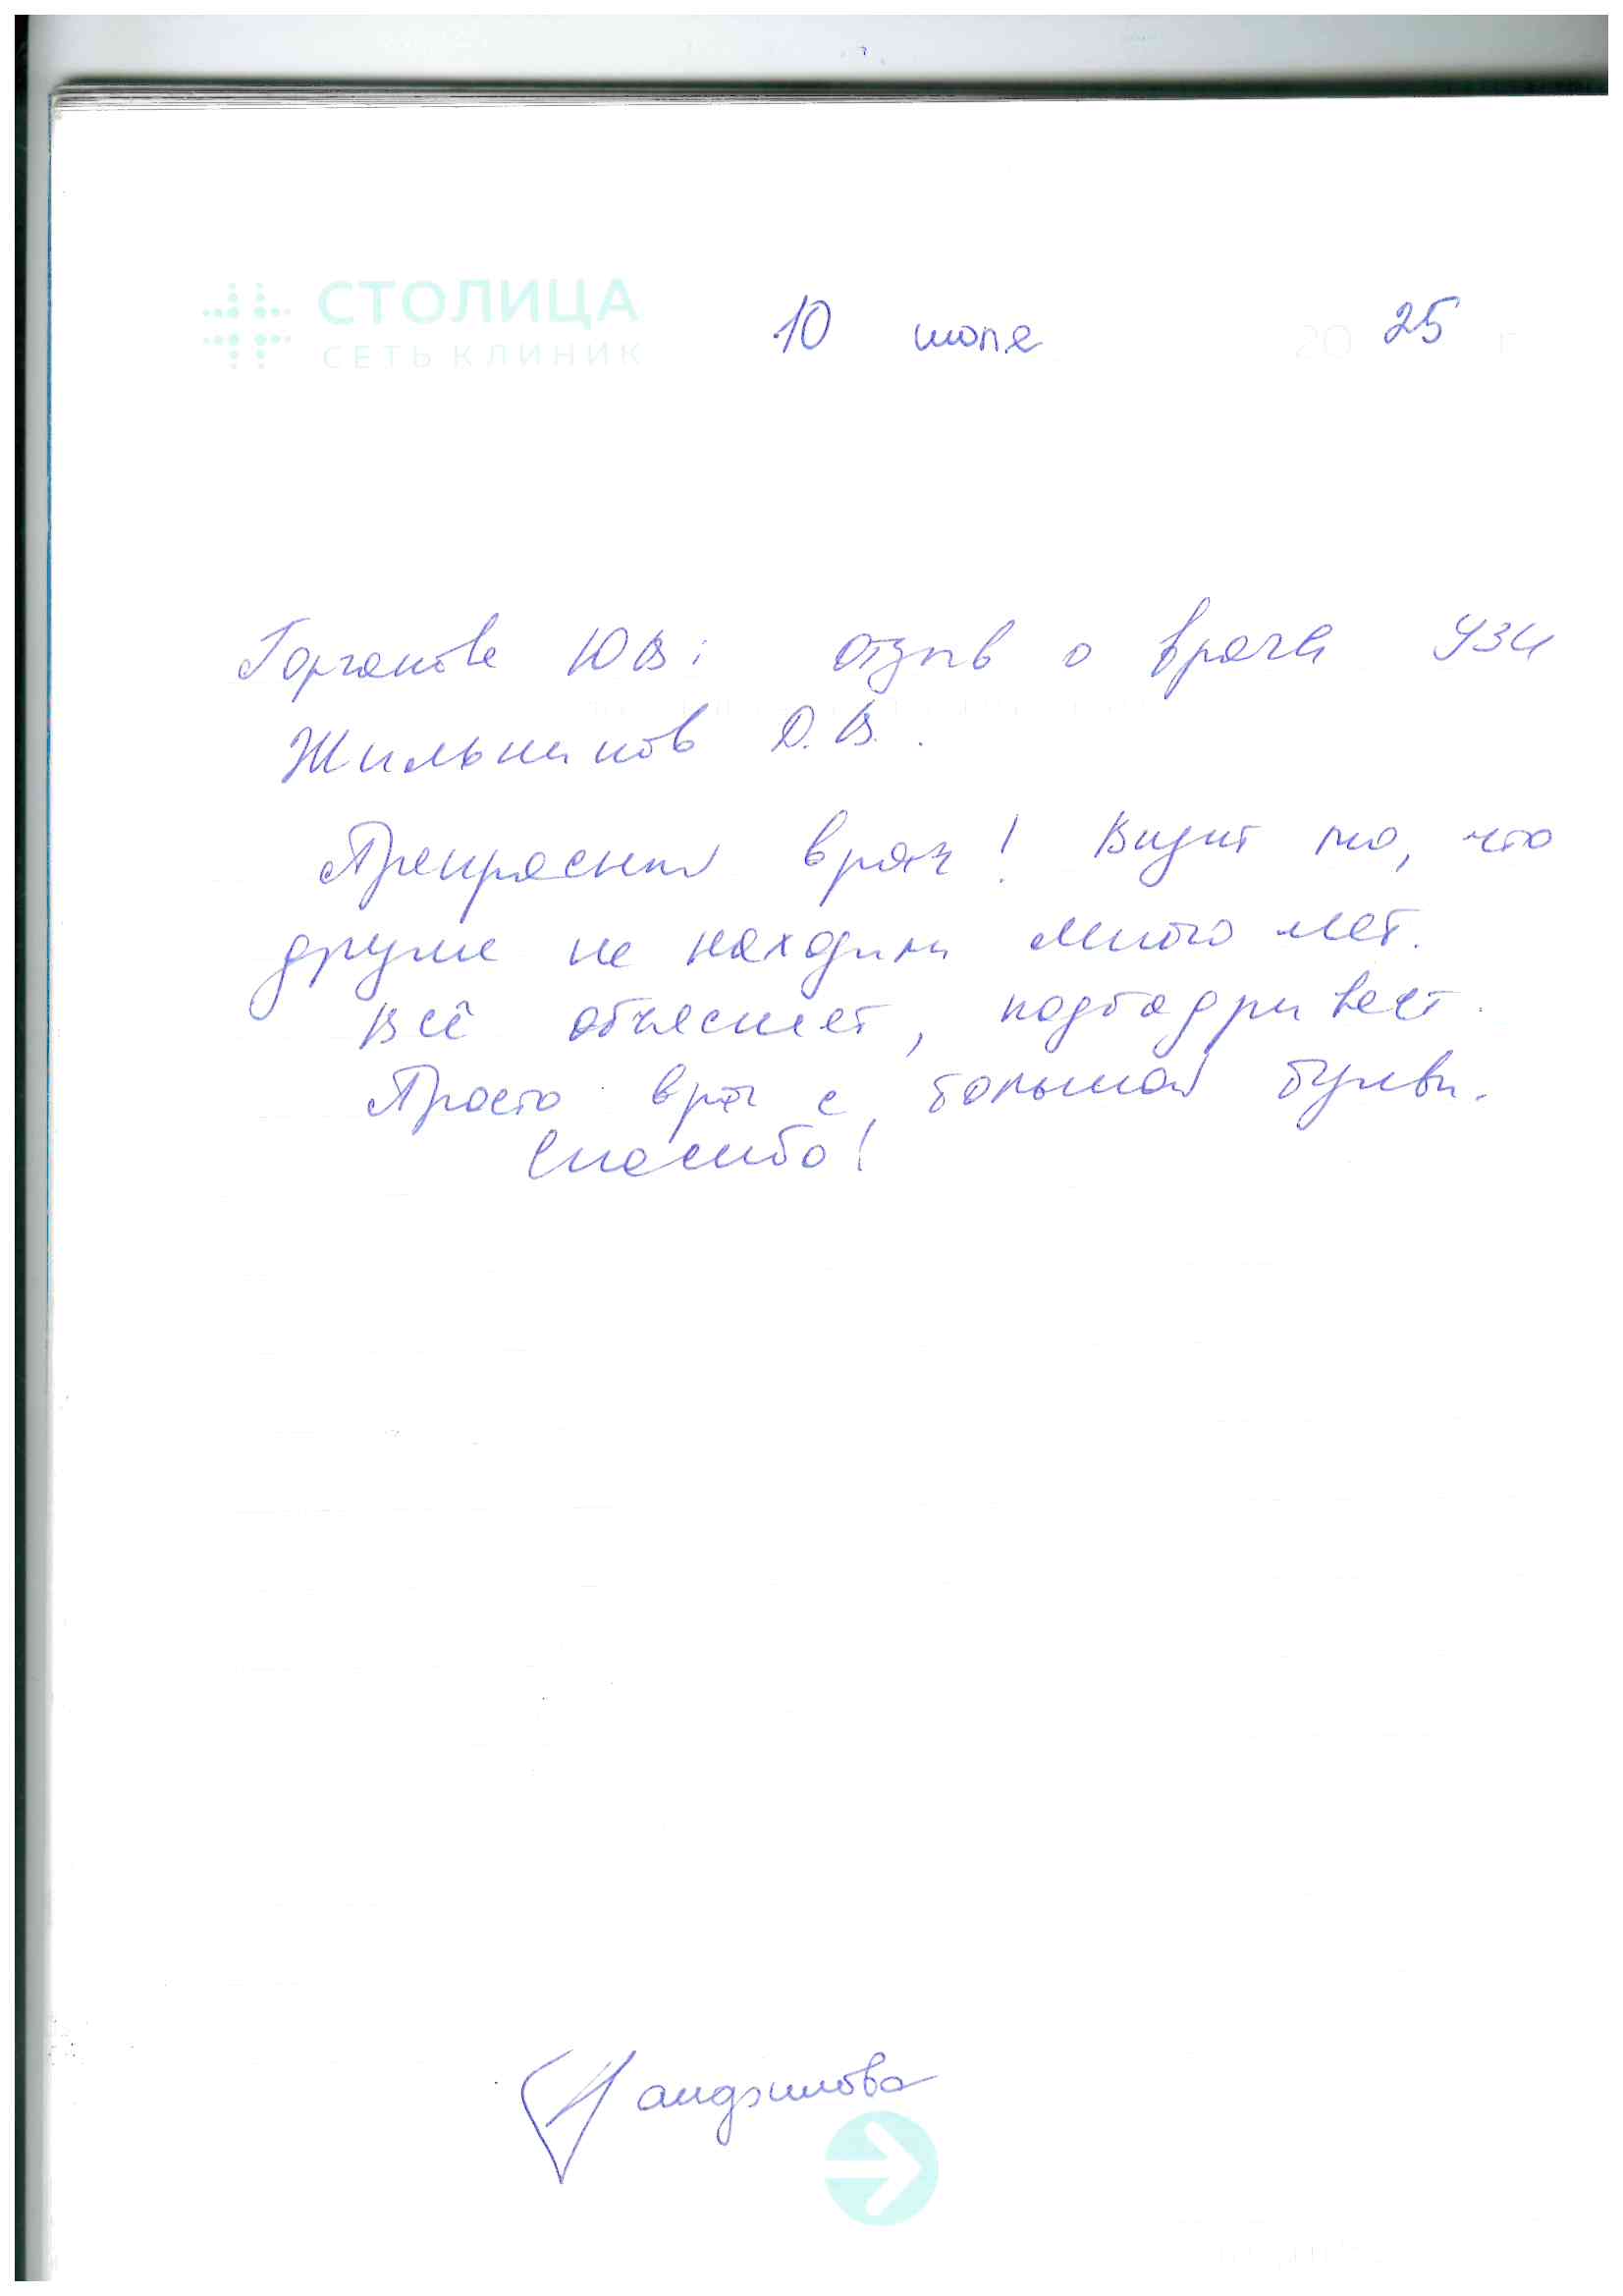 СТОЛИЦА
СЕТЬ КЛИНИК
10 июля 2025 г
Горганова Ю.В: отзыв о враче УЗИ
Жильников Д.В.
Прекрасный врач! Видит то, что
другие не находили много лет.
Всё объясняет, подбадривает.
Просто врач с большой буквы.
Спасибо!